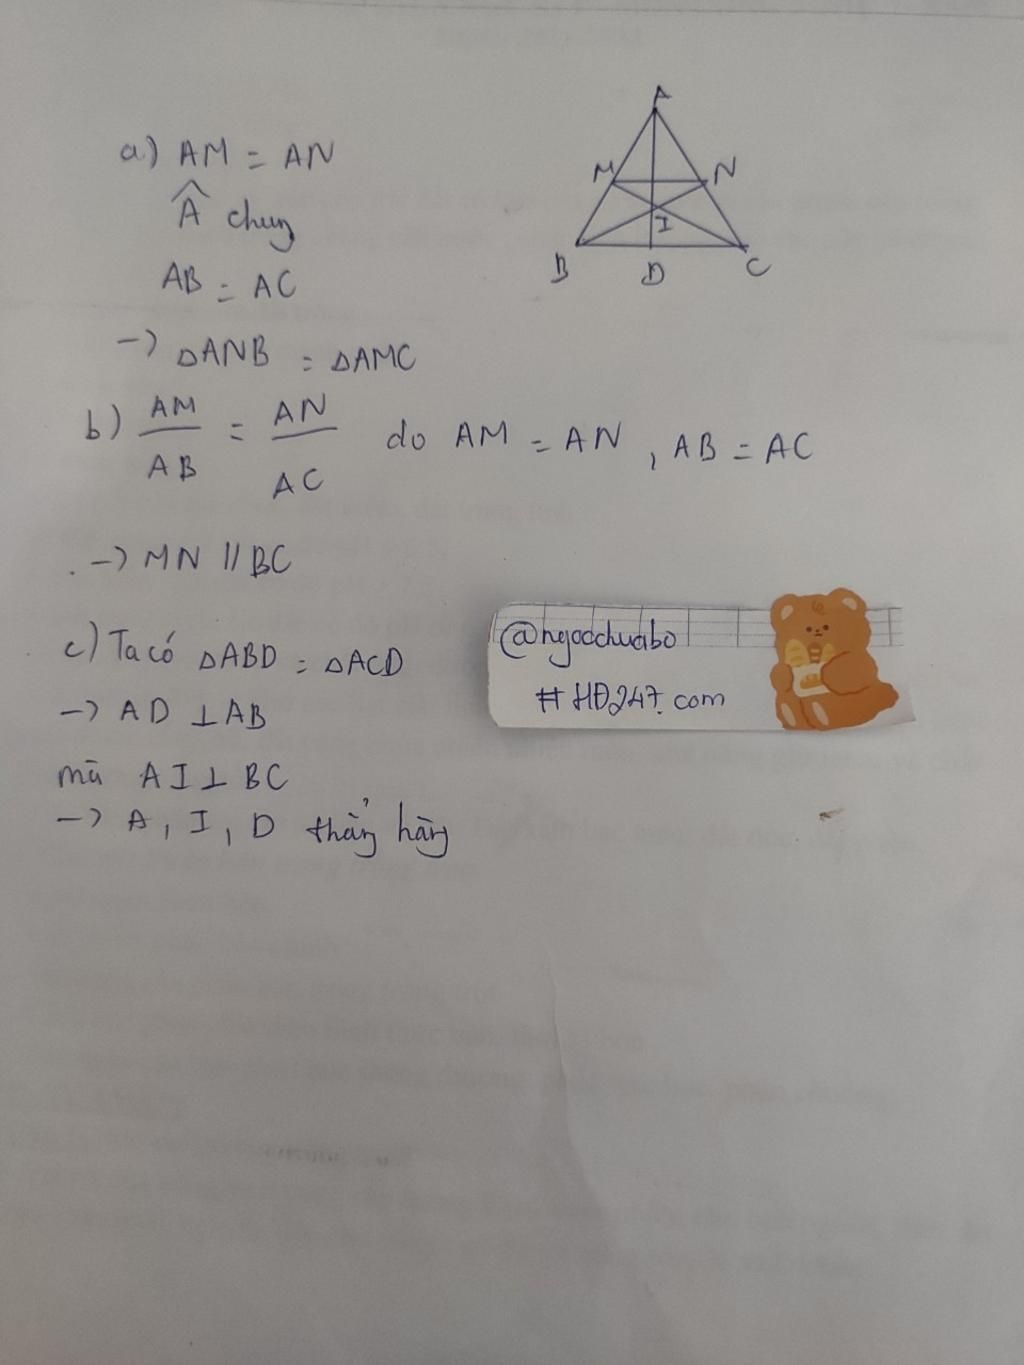 a) AM = AN
Â chung
AB = AC
-> △ANB = △AMC
b) AM/AB = AN/AC do AM = AN, AB = AC
-> MN // BC
c) Ta có △ABD = △ACD
-> AD ⊥ AB
mà AI ⊥ BC
-> A, I, D thẳng hàng
A
M N
I
B D C
@ngocchuabo
#HĐ247.com